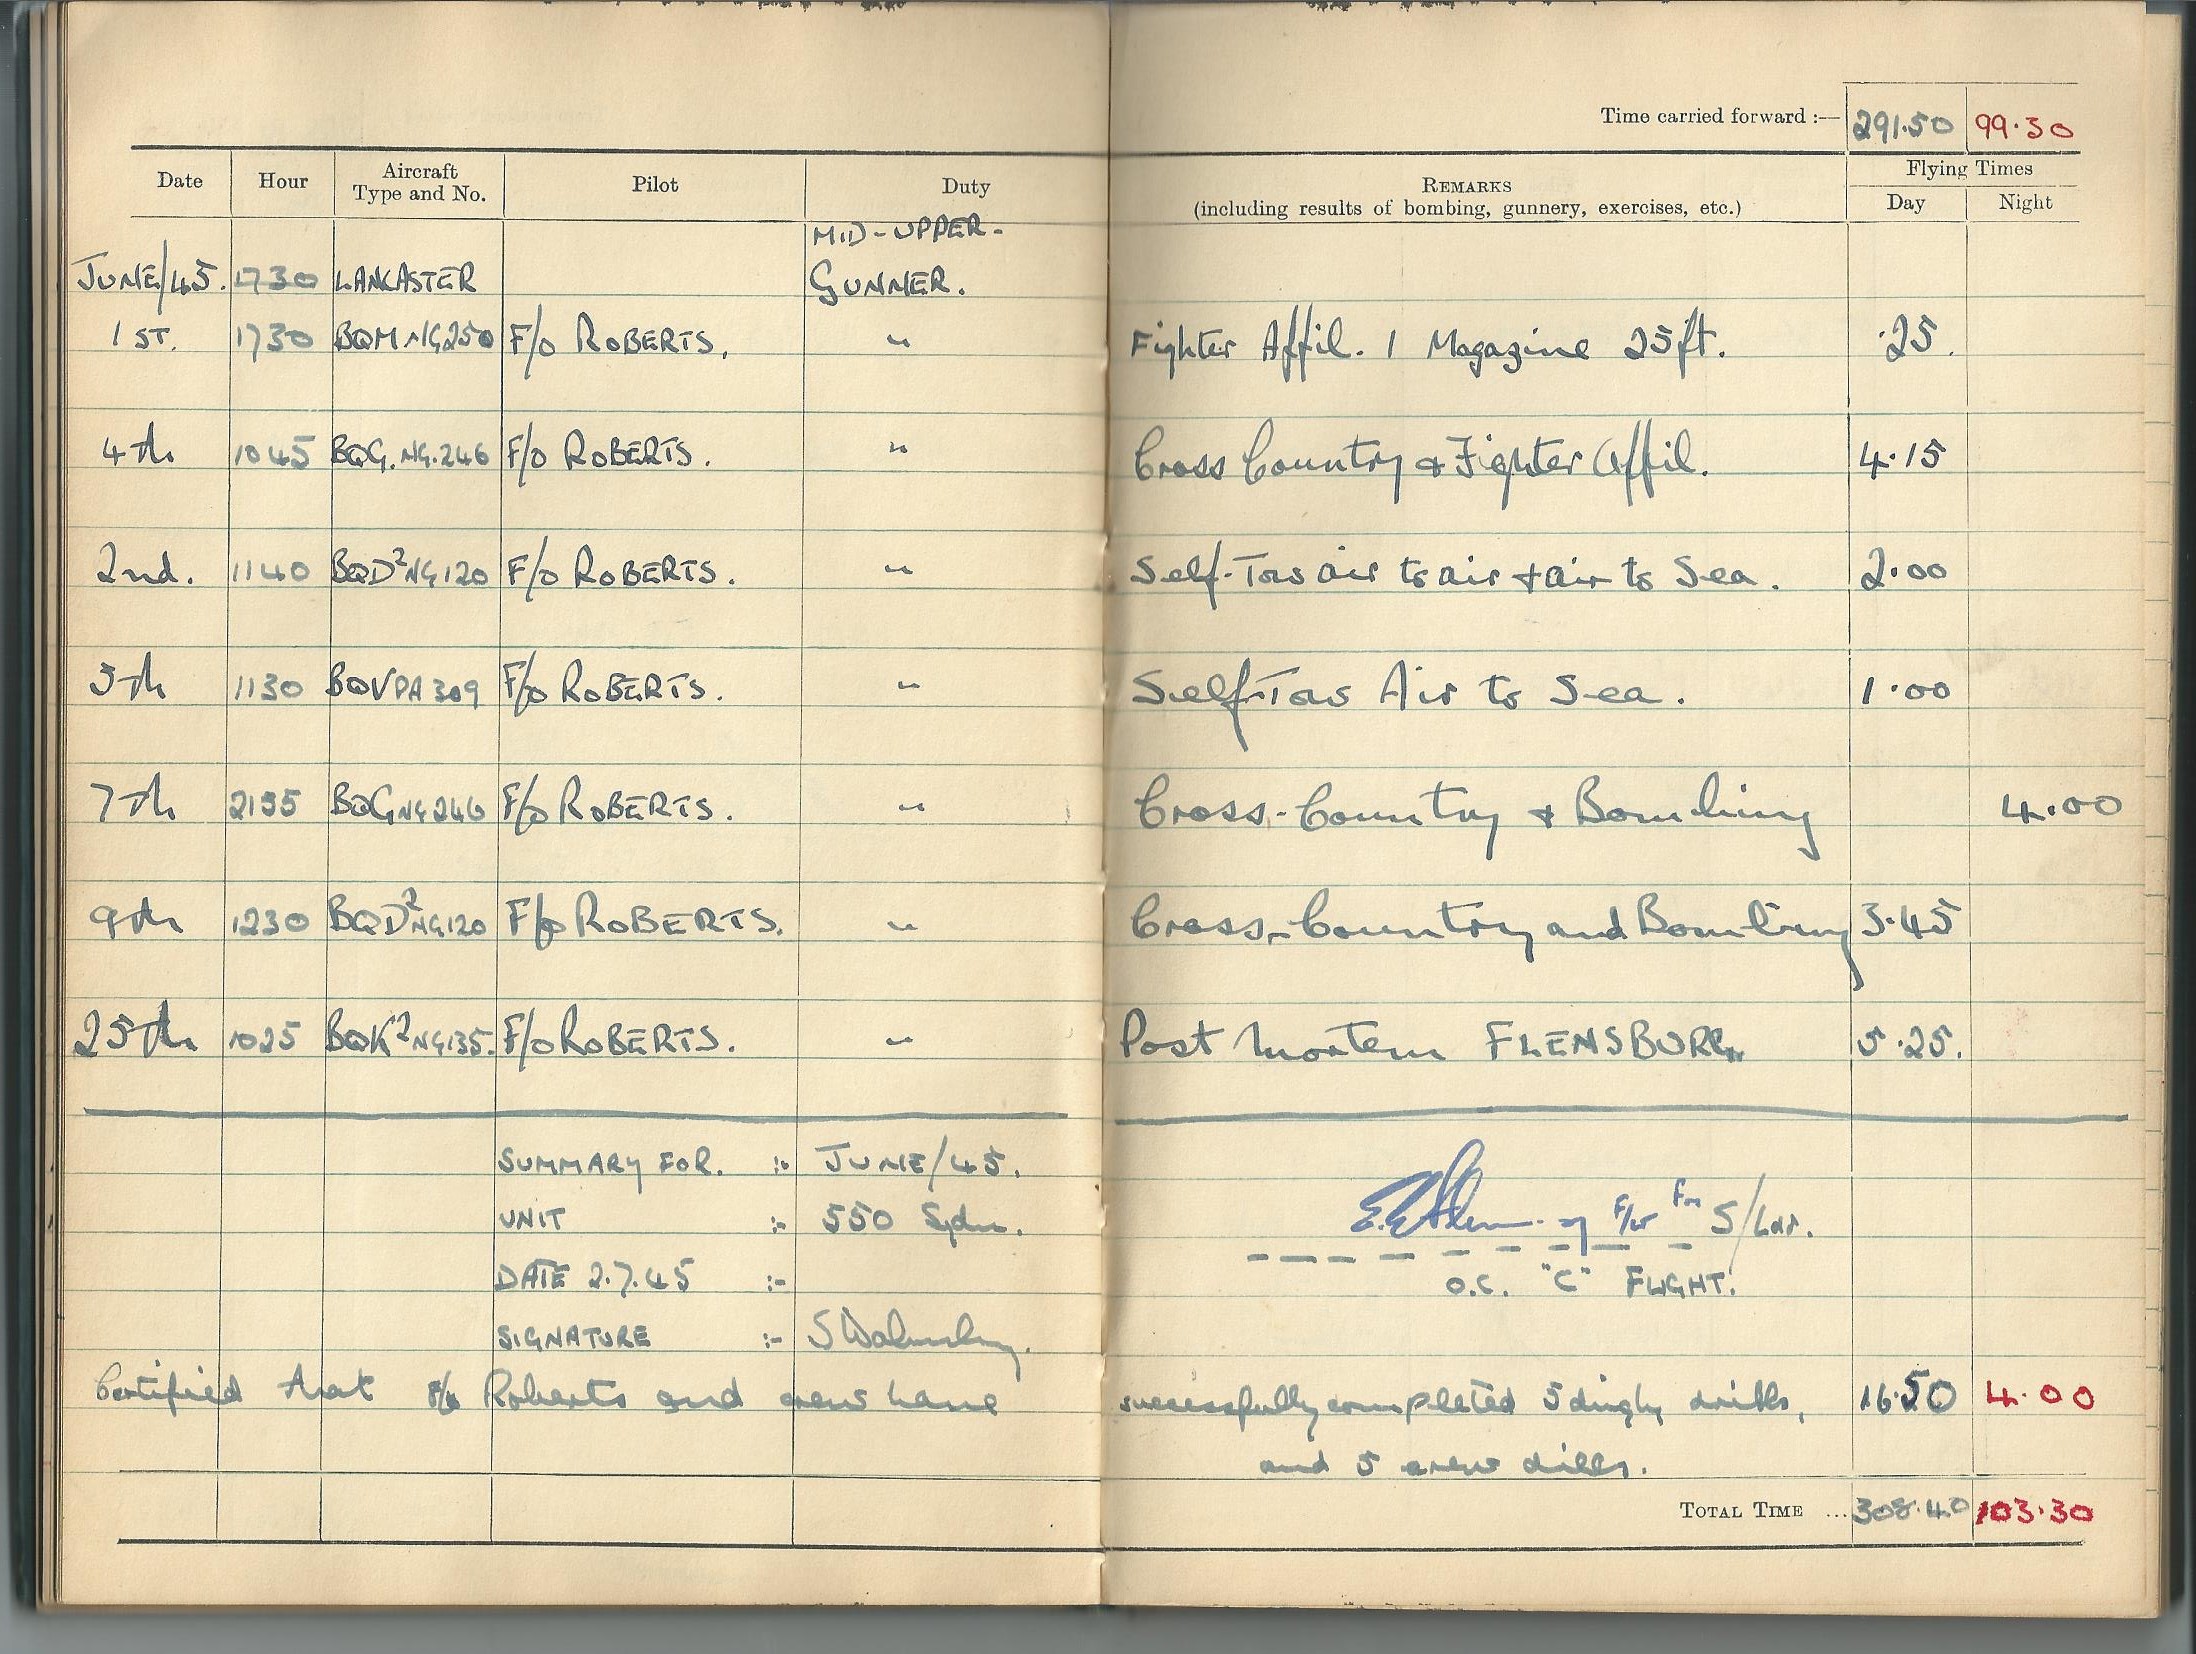 Time carried forward :— 291.50 99.30
Date Hour Aircraft Type and No. Pilot Duty REMARKS (including results of bombing, gunnery, exercises, etc.) Flying Times Day Night
MID-UPPER-
JUNE/45. 1730 LANCASTER GUNNER.
1ST. 1730 BQM NG250 F/O ROBERTS. " Fighter Affil. 1 Magazine 25ft. .25.
4th 1045 BQG. NG.246 F/O ROBERTS. " Cross Country & Fighter Affil. 4.15
2nd. 1140 BQD² NG120 F/O ROBERTS. " Self-Tow air to air + air to Sea. 2.00
5th 1130 BQV PA309 F/O ROBERTS. " Self-Tow Air to Sea. 1.00
7th 2155 BQG NG246 F/O ROBERTS. " Cross-Country & Bombing 4.00
9th 1230 BQD² NG120 F/O ROBERTS. " Cross-Country and Bombing 3.45
25th 1025 BQK² NG135. F/O ROBERTS. " Post Mortem FLENSBURG 5.25.
SUMMARY FOR. :- JUNE/45.
UNIT :- 550 Sqdn. F/Lt For S/Ldr.
DATE 2.7.45 :- O.C. "C" FLIGHT.
SIGNATURE :- S Walmsley.
Certified that F/O Roberts and crew have successfully completed 5 dinghy drills, 16.50 4.00
and 5 crew drills.
TOTAL TIME ... 308.40 103.30